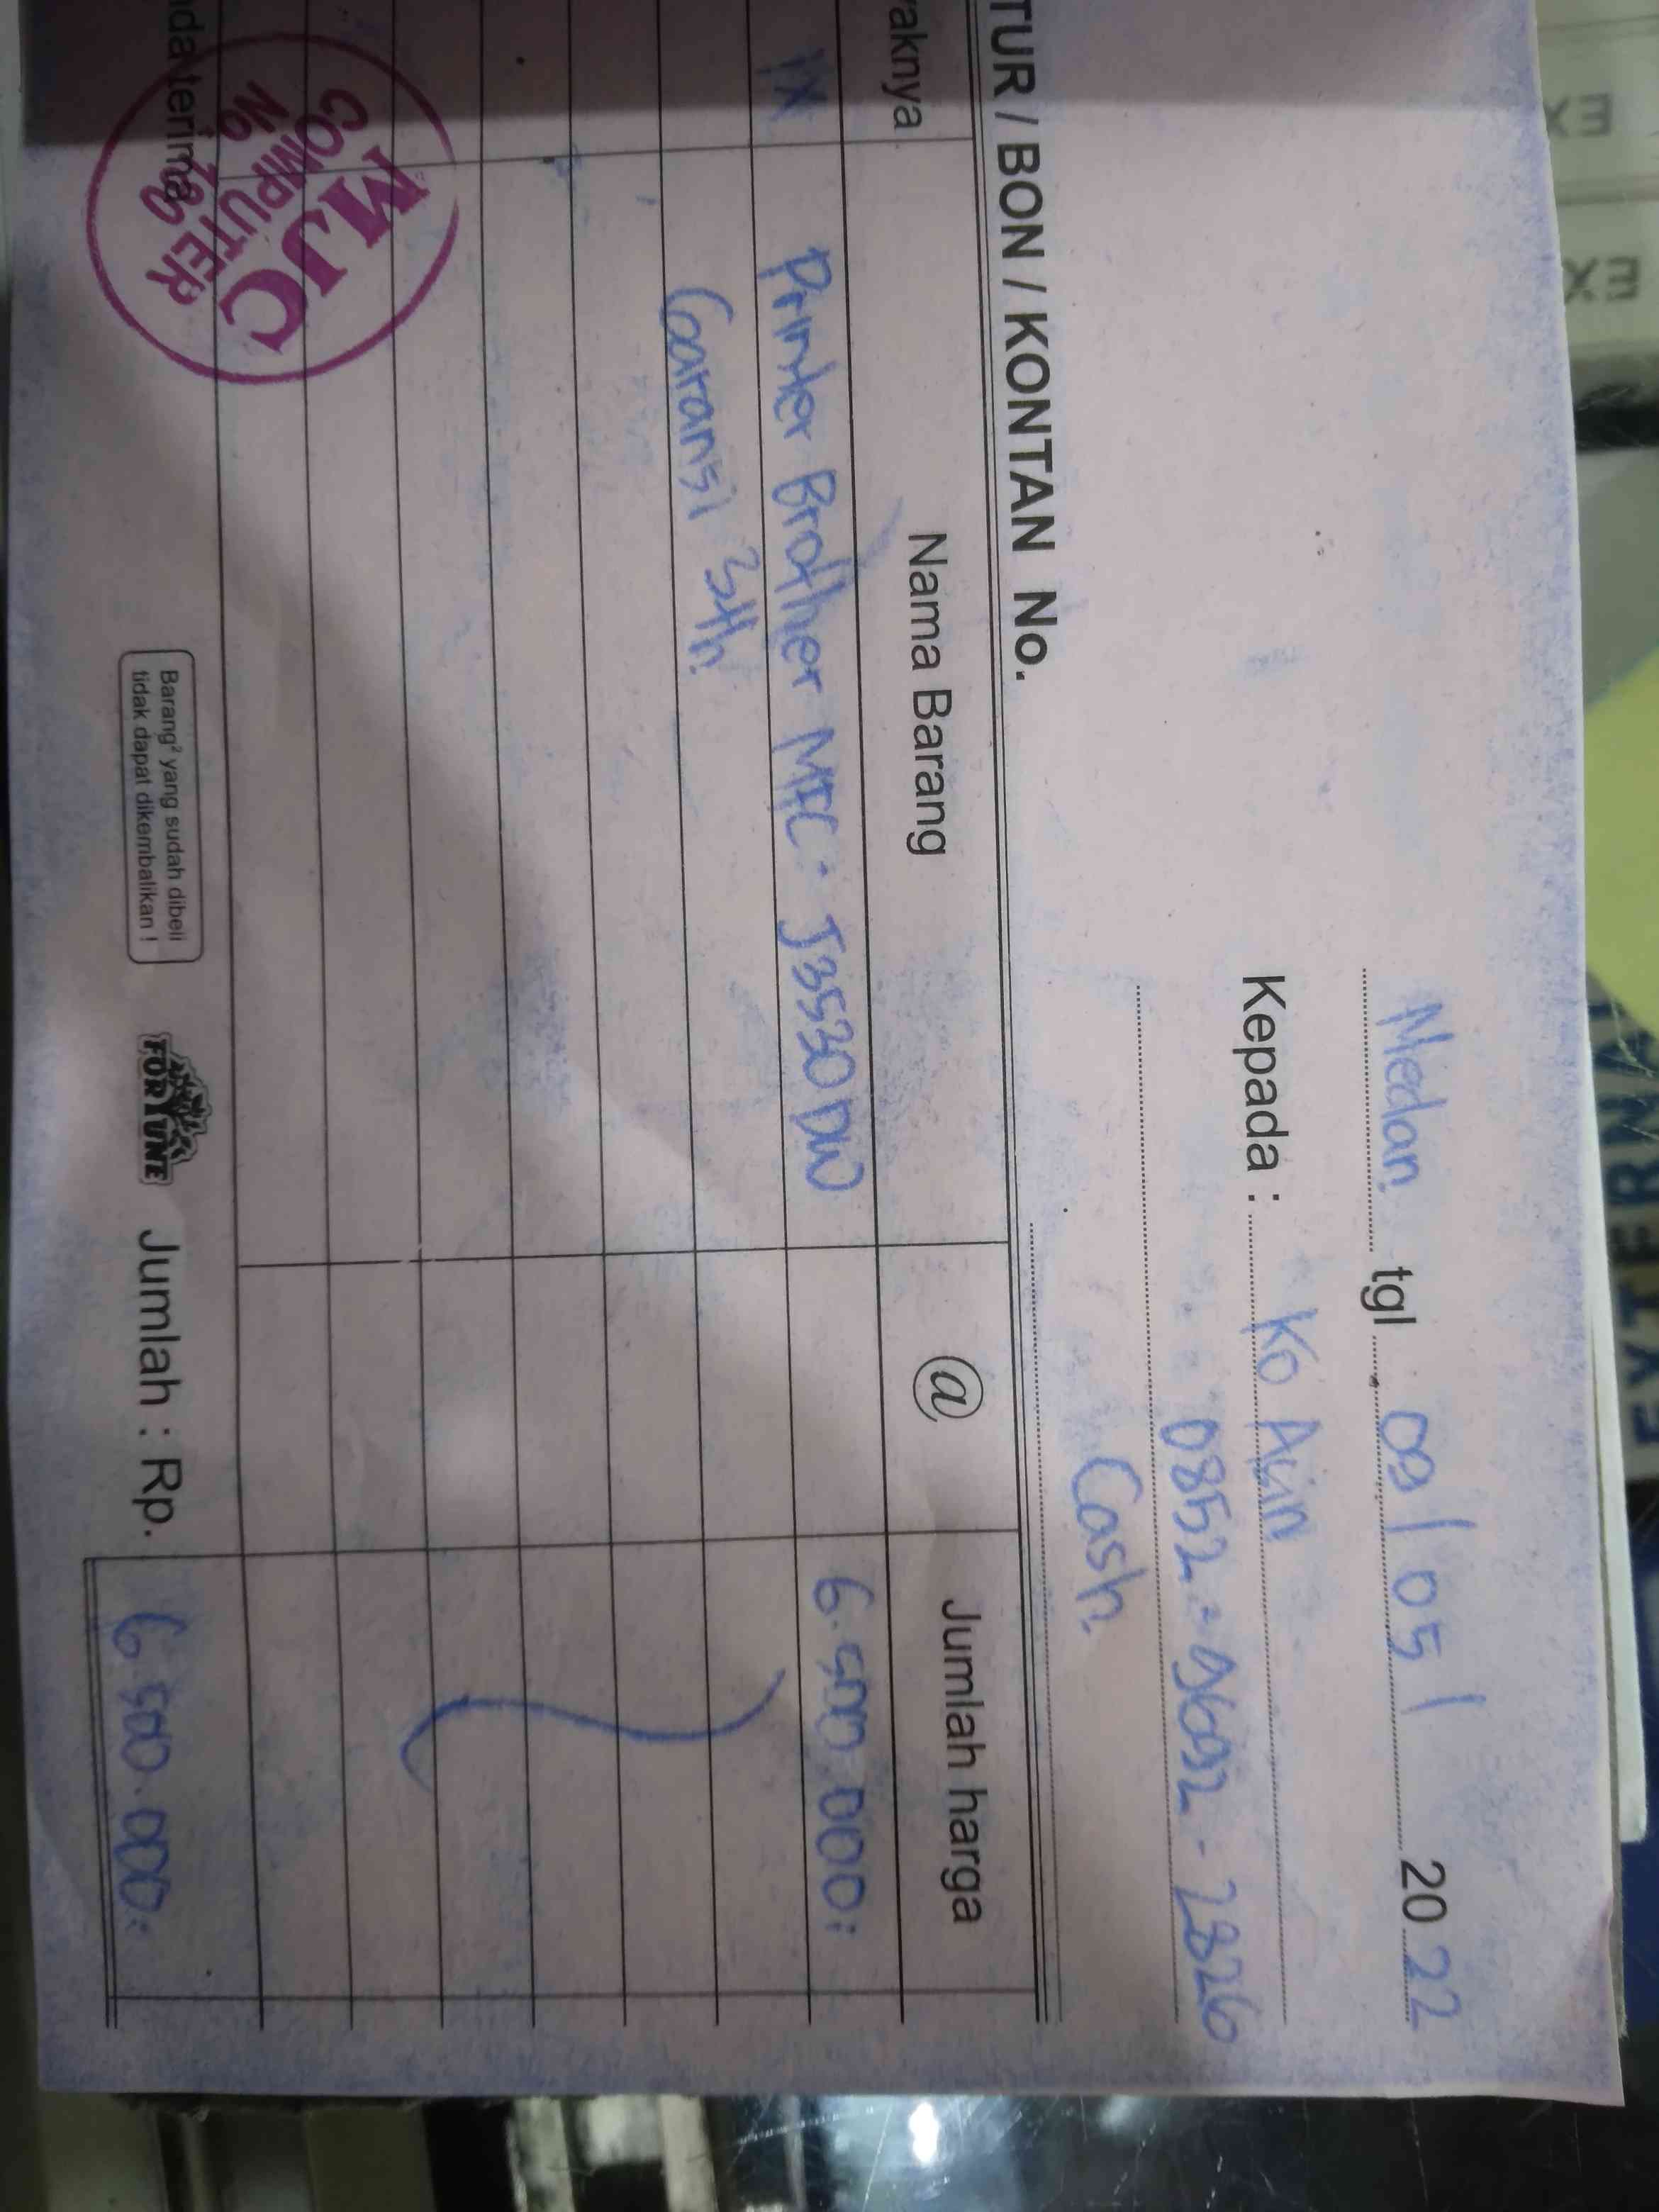 Medan tgl 09/05/ 2022
Kepada : Ko Asin
0852-9692-2826
Cash
TUR / BON / KONTAN No.
aknya Nama Barang @ Jumlah harga
1X Printer Brother MFC-J3530DW 6.500.000:
Garansi 3th
nda terima
MJC
COMPUTER
No 28
Barang² yang sudah dibeli
tidak dapat dikembalikan !
FORTUNE
Jumlah : Rp. 6.500.000:
EX
EX
EXTERNAL